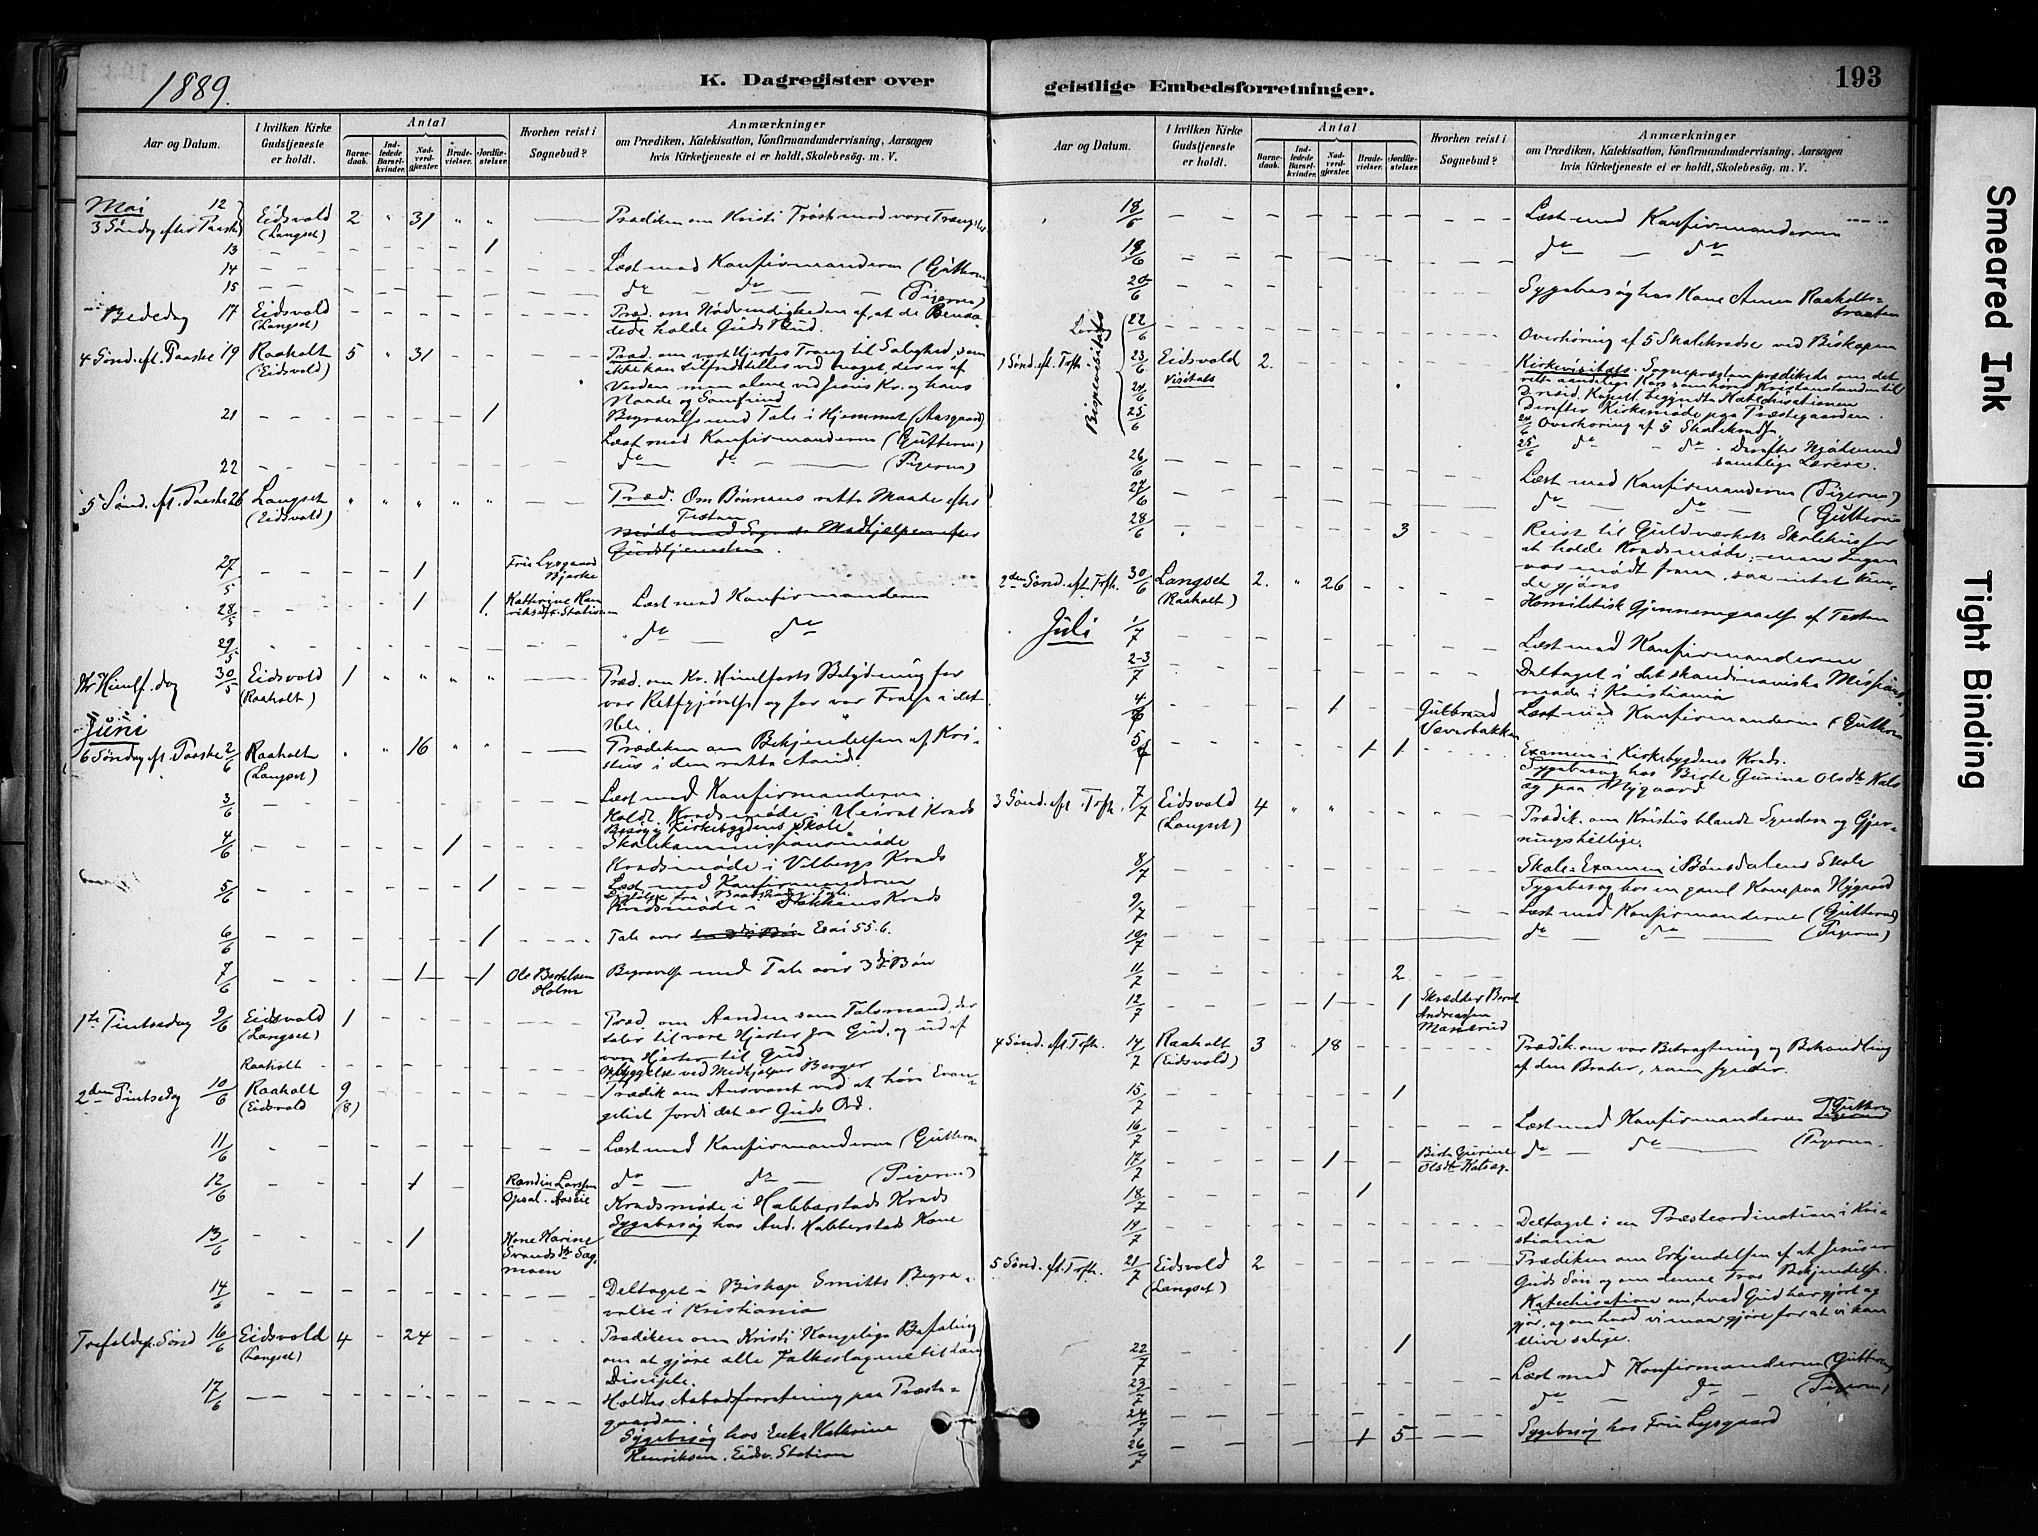 1889.
K. Dagregister over
Aar og Datum.
I hvilken Kirke Gudstjeneste er holdt.
Antal
Barnedaab.
Indledede Barselkvinder.
Nadverdgjæster.
Brudevielser.
Jordfæstelser.
Hvorhen reist i Sognebud?
Anmærkninger
om Prædiken, Katekisation, Konfirmandundervisning, Aarsagen
hvis Kirketjeneste ei er holdt, Skolebesög. m. V.
Mai 12
3 Søndag efter Paaske Eidsvold (Langset) 2 " 31 " " Prædiken om Kristi Trøst mod vore Trængsler
13 1
14 Læst med Konfirmanderne (Gutterne)
15 do do (Pigerne)
Bededag 17 Eidsvold (Langset) Præd. om Nødvendigheden af, at de Benaadede holde Guds Bud.
4 Sønd. eft. Paaske 19 Raaholt (Eidsvold) 5 " 31 Præd. om vort Hjertes Trang til Salighed, som
ikke kan tilfredstilles ved noget, der er af
Verden men alene ved Jesus Kr. og hans
Naade og Samfund
21 1 Begravelse med Tale i Hjemmet (Aasgaard)
Læst med Konfirmanderne (Gutterne)
22 do do (Pigerne)
5 Sønd. eft. Paaske 26 Langset (Eidsvold) " " " " " Præd. Om Bønnens rette Maade efter
Texten
Møde med Medhjælperne efter
Gudstjenesten.
27/5 1 Fru Lysgaard Bjerke
28/5 1 1 Kathrine Henriksdtr. Stationen Læst med Konfirmanderne
29/5 do do
Kr Himlf. dag 30/5 Eidsvold (Raaholt) 1 " " " " Præd. om Kr. Himlfarts Betydning for
vor Retfgjørelse og for vor Frelse i det
Hele.
Juni
6 Søndag eft. Paaske 2/6 Raaholt (Langset) " " 16 " " Prædiken om Bekjendelsen af Kristus i den rette Aand.
3/6 Læst med Konfirmanderne.
Holdt Kredsmøde i Kreds
Besøg i Kirkebygdens Skole
4/6 1 Skolekommissionsmøde
Kredsmøde i Vilbergs Kreds
5/6 1 Læst med Konfirmanderne
Kredsmøde i Kreds
6/6 1 Tale over Esai 55.6.
7/6 1 1 Ole Bertelsen Holm Begravelse med Tale over 3die Bøn
1ste Pintsedag 9/6 Eidsvold (Langset) 1 Præd. om Aanden som Talsmand, der
taler til vore Hjerter fra Gud, og ud af
vore Hjerter til Gud
Raaholt Opbyggelse ved Medhjelper Berger
2den Pintsedag 10/6 Raaholt (Eidsvold 9 (8) Prædik om Ansvaret ved at høre Evangeliet fordi det er Guds Ord.
11/6 Læst med Konfirmanderne (Gutterne
12/6 1 Randine Larssen Opsal. Aaseie do do (Pigerne)
Kredsmøde i Habberstads Kreds
Sygebesøg hos And. Habberstads Kone
13/6 1 Kone Karine Svendsdtr Sagmoen
14/6 Deltaget i Biskop Smitts Begravelse i Kristiania
Trefoldigh. Sønd 16/6 Eidsvold (Langset) 4 - 24 Prædiken om Kristi Kongelige Befaling
om at gjøre alle Folkeslagene til hans
Disciple.
17/6 Holdt paa Præstegaarden.
Sygebesøg hos Enke Kathrine
Henriksen. Eidsv. Station
geistlige Embedsforretninger.
193
Aar og Datum.
I hvilken Kirke Gudstjeneste er holdt.
Antal
Barnedaab.
Indledede Barselkvinder.
Nadverdgjæster.
Brudevielser.
Jordfæstelser.
Hvorhen reist i Sognebud?
Anmærkninger
om Prædiken, Katekisation, Konfirmandundervisning, Aarsagen
hvis Kirketjeneste ei er holdt, Skolebesög. m. V.
18/6 Læst med Konfirmanderne
19/6 do do
20/6 Sygebesøg hos Kone Anne Raaholtsbraaten
Bispevisitats
22/6 Overhøring af 5 Skolekredse ved Biskopen
1 Sønd. eft. Trefh. 23/6 Eidsvold Visitats 2. Kirkevisitats. Sognepræsten prædikede om det
rette aandelige Kors som hører Kristenstanden til
Derefter Kirkemøde paa Præstegaarden.
24/6
25/6
24/6 Overhøring af 5 Skolekredse
25/6 do do. Derefter Møde med
samtlige Lærere.
26/6 Læst med Konfirmanderne (Pigerne)
27/6 do do (Gutterne
28/6 3 Reist til Guldværkets Skolehus for
at holde Kredsmøde, men Ingen
var mødt frem, saa intet kunde gjøres
2den Sønd. eft. Trefh. 30/6 Langset (Raaholt) 2. " 26 Homiletisk Gjennemgaaelse af Texten
Juli 1/7 Læst med Konfirmanderne
2-3/7 Deltaget i det skandinaviske Missionsmøde i Kristiania
4/7 1 Gulbrand Læst med Konfirmanderne (Gutterne
5/7 1 1 Examen i Kirkebygdens Kreds.
Sygebesøg hos Birte Gurine Olsdtr
og paa Nygaard
3 Sønd. eft. Trefh. 7/7 Eidsvold (Langset) 4 " " Prædik. om Kristus blandt Syndere og Gjerningshellige.
8/7 Skole-Examen i Bønsdalens Skole
Sygebesøg hos en gml Kone paa Nygaard
9/7 Læst med Konfirmanderne (Gutterne)
10/7 do do (Pigerne)
11/7 2
12/7 1 1 Skrædder Bernt Andreassen
4 Sønd. eft. Trefh. 14/7 Raaholt (Eidsvold) 3 " 18 Prædik. om vor Betragtning og Behandling
af den Broder, som synder.
15/7 1
16/7 Læst med Konfirmanderne Gutterne
17/7 1 Birte Gurine Olsdtr do do (Pigerne.
18/7 1
19/7 Deltaget i en Præsteordination i Kristiania
5 Sønd. eft. Trefh. 21/7 Eidsvold (Langset) 2 Prædiken om Erkjendelsen af at Jesus er
Guds Søn og om denne Tros Bekjendelse.
Katechisation om, hvad Gud har gjort og
gjør, og om hvad vi maa gjøre for at vi kan
blive salige.
22/7 1
23/7 Læst med Konfirmanderne (Gutterne)
24/7 do do (Pigerne)
26/7 1 5 Sygebesøg hos Fru Lysgaard
Smeared Ink
Tight Binding